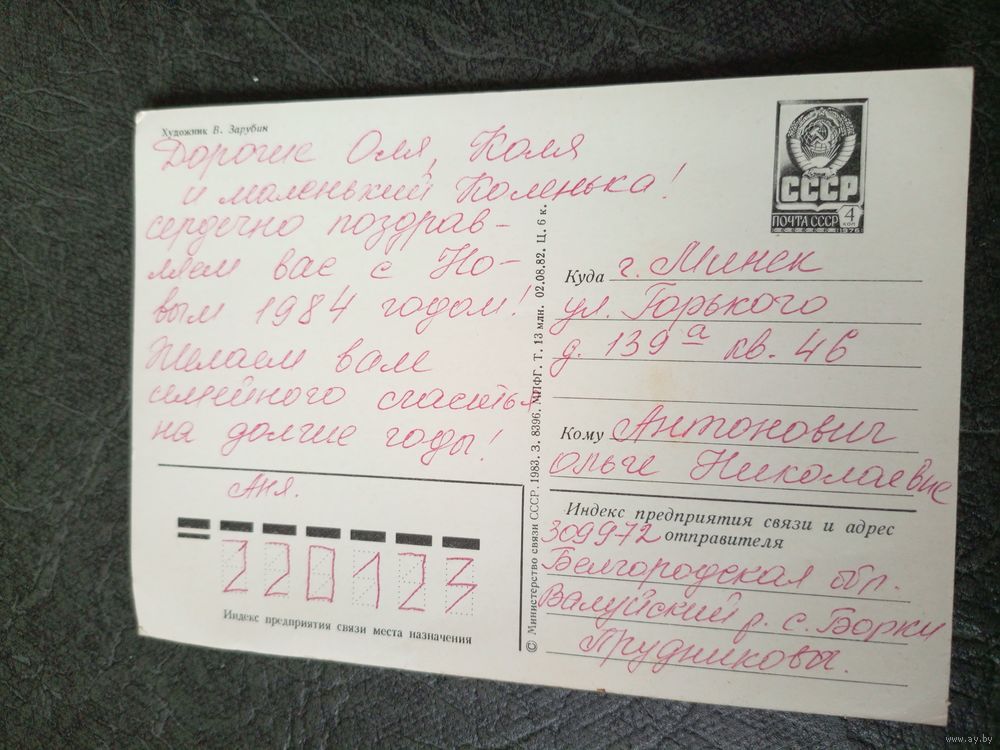 Художник В. Зарубин
Дорогие Оля, Коля
и маленький Коленька!
сердечно поздрав-
ляем вас с Но-
вым 1984 годом!
Желаем вам
семейного счастья
на долгие годы!
Аня.
220123
Индекс предприятия связи места назначения
© Министерство связи СССР. 1983. З. 8396. МПФГ. Т. 13 млн. 02.08.82. Ц. 6 к.
СССР
ПОЧТА СССР 4 КОП
1976
Куда г. Минск
ул. Горького
д. 139 а кв. 46
Кому Антонович
Ольге Николаевне
Индекс предприятия связи и адрес
отправителя
309972
Белгородская обл.
Валуйский р. с. Борки
Трудниковы.
www.ay.by